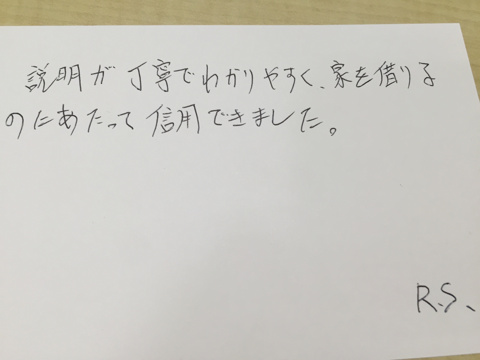 説明が丁寧でわかりやすく、家を借りる
のにあたって信用できました。
R.S、